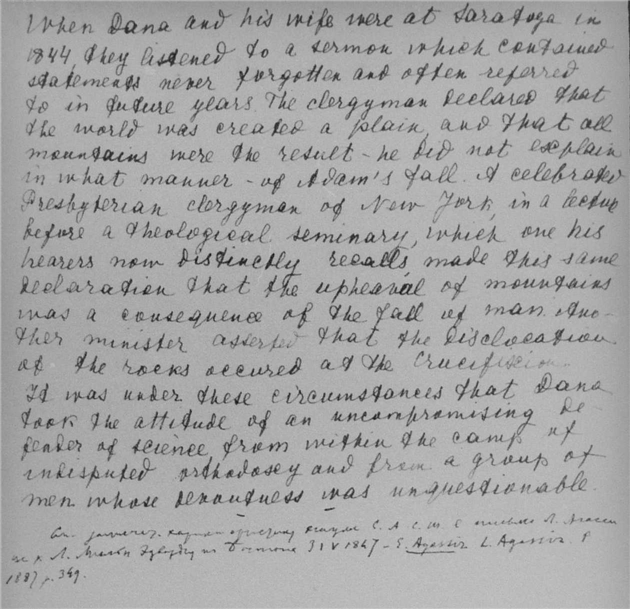 When Dana and his wife were at Saratoga in
1844, they listened to a sermon which contained
statements never forgotten and often referred
to in future years. The clergyman declared that
the world was created a plain, and that all
mountains were the result – he did not explain
in what manner – of Adam's fall. A celebrated
Presbyterian clergyman of New York, in a lecture
before a theological seminary, which one his
hearers now distinctly recalls, made this same
declaration that the upheaval of mountains
was a consequence of the fall of man. Ano-
ther minister asserted that the dislocation
of the rocks occured at the Crucifixion.
It was under these circumstances that Dana
took the attitude of an uncompromising de-
fender of science, from within the camp of
indisputed orthodoxy and from a group of
men whose devoutness was unquestionable.
С. А. С. Ш. с Л.
Л. 31 V 1847 – E. Agassiz L. Agassiz.
1887 p. 369.